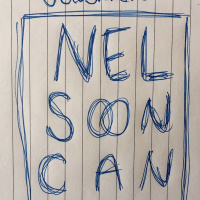 NEL
SOON
CAN